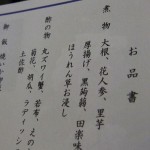 お品書
煮物 大根、花人参、里芋
厚揚げ、黒蒟蒻、田楽味
ほうれん草お浸し
酢の物 丸ズワイ蟹、若布、えの
菊花、胡瓜、ラディッシ
土佐酢